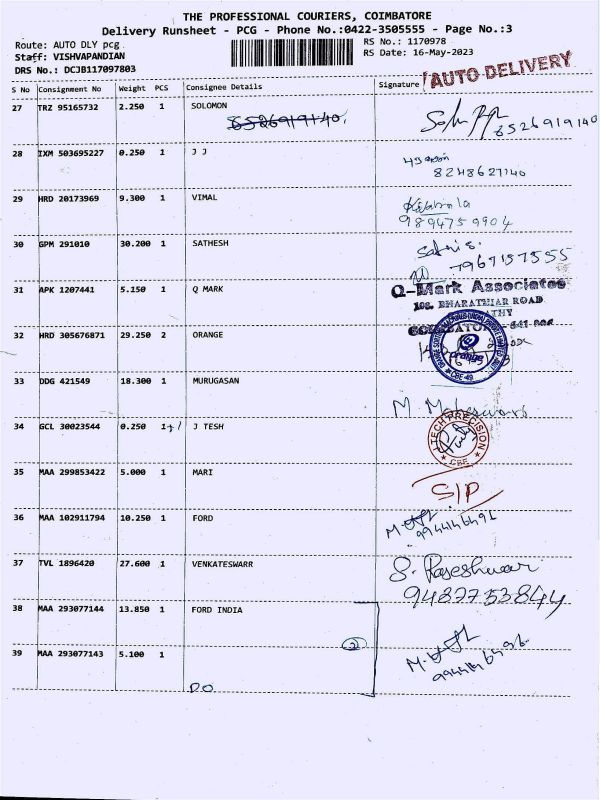 THE PROFESSIONAL COURIERS, COIMBATORE
Delivery Runsheet - PCG - Phone No.:0422-3505555 - Page No.:3
Route: AUTO DLY pcg
RS No.: 1170978
Staff: VISHVAPANDIAN
RS Date: 16-May-2023
DRS No.: DCJB117097803
AUTO DELIVERY
S No Consignment No Weight PCS Consignee Details Signature
27 TRZ 95165732 2.250 1 SOLOMON
6526919140
6526919140
28 IXM 503695227 0.250 1 J J
8248627140
29 HRD 20173969 9.300 1 VIMAL
9894759904
30 GPM 291010 30.200 1 SATHESH
7967157555
31 APK 1207441 5.150 1 Q MARK
Q-Mark Associates
108, BHARATHIAR ROAD
32 HRD 305676871 29.250 2 ORANGE
orange
CBE-49
33 DDG 421549 18.300 1 MURUGASAN
M. Maheswari
34 GCL 30023544 0.250 1 J TESH
TECH PRECISION
CBE
35 MAA 299853422 5.000 1 MARI
S/P
36 MAA 102911794 10.250 1 FORD
9944146496
37 TVL 1896420 27.600 1 VENKATESWARR
S. Rajeshwari
9487753844
38 MAA 293077144 13.850 1 FORD INDIA
2
39 MAA 293077143 5.100 1
9944146496
DO